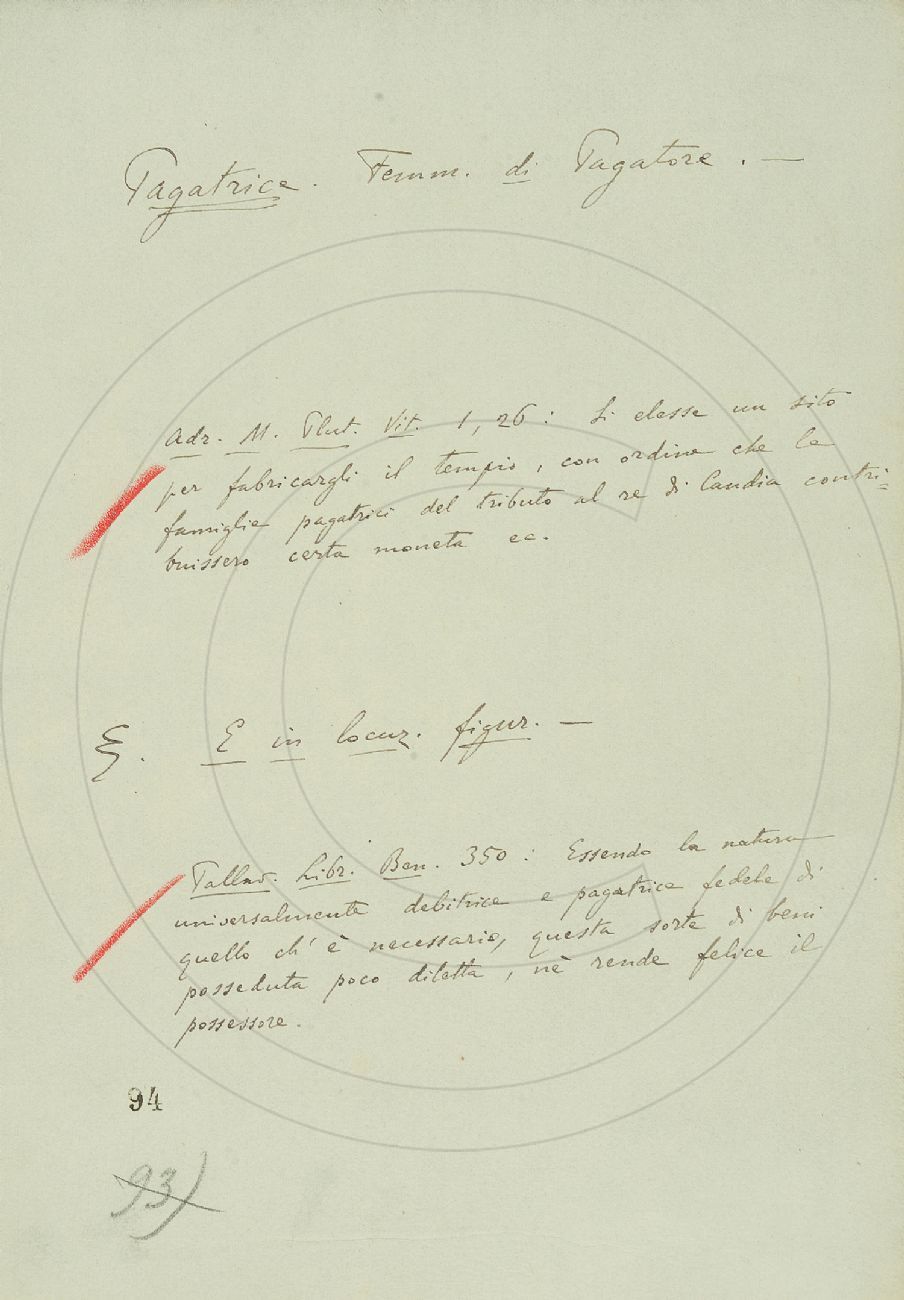 Pagatrice. Femm. di Pagatore. —
Adr. M. Plut. Vit. 1, 26: Si elesse un sito
per fabricargli il tempio, con ordine che le
famiglie pagatrici del tributo al re di Candia contri=
buissero certa moneta ec.
§. E in locuz. figur. —
Pallav. Libr. Ben. 350: Essendo la natura
universalmente debitrice e pagatrice fedele di
quello ch' è necessario, questa sorte di beni
posseduta poco diletta, nè rende felice il
possessore.
94
93)